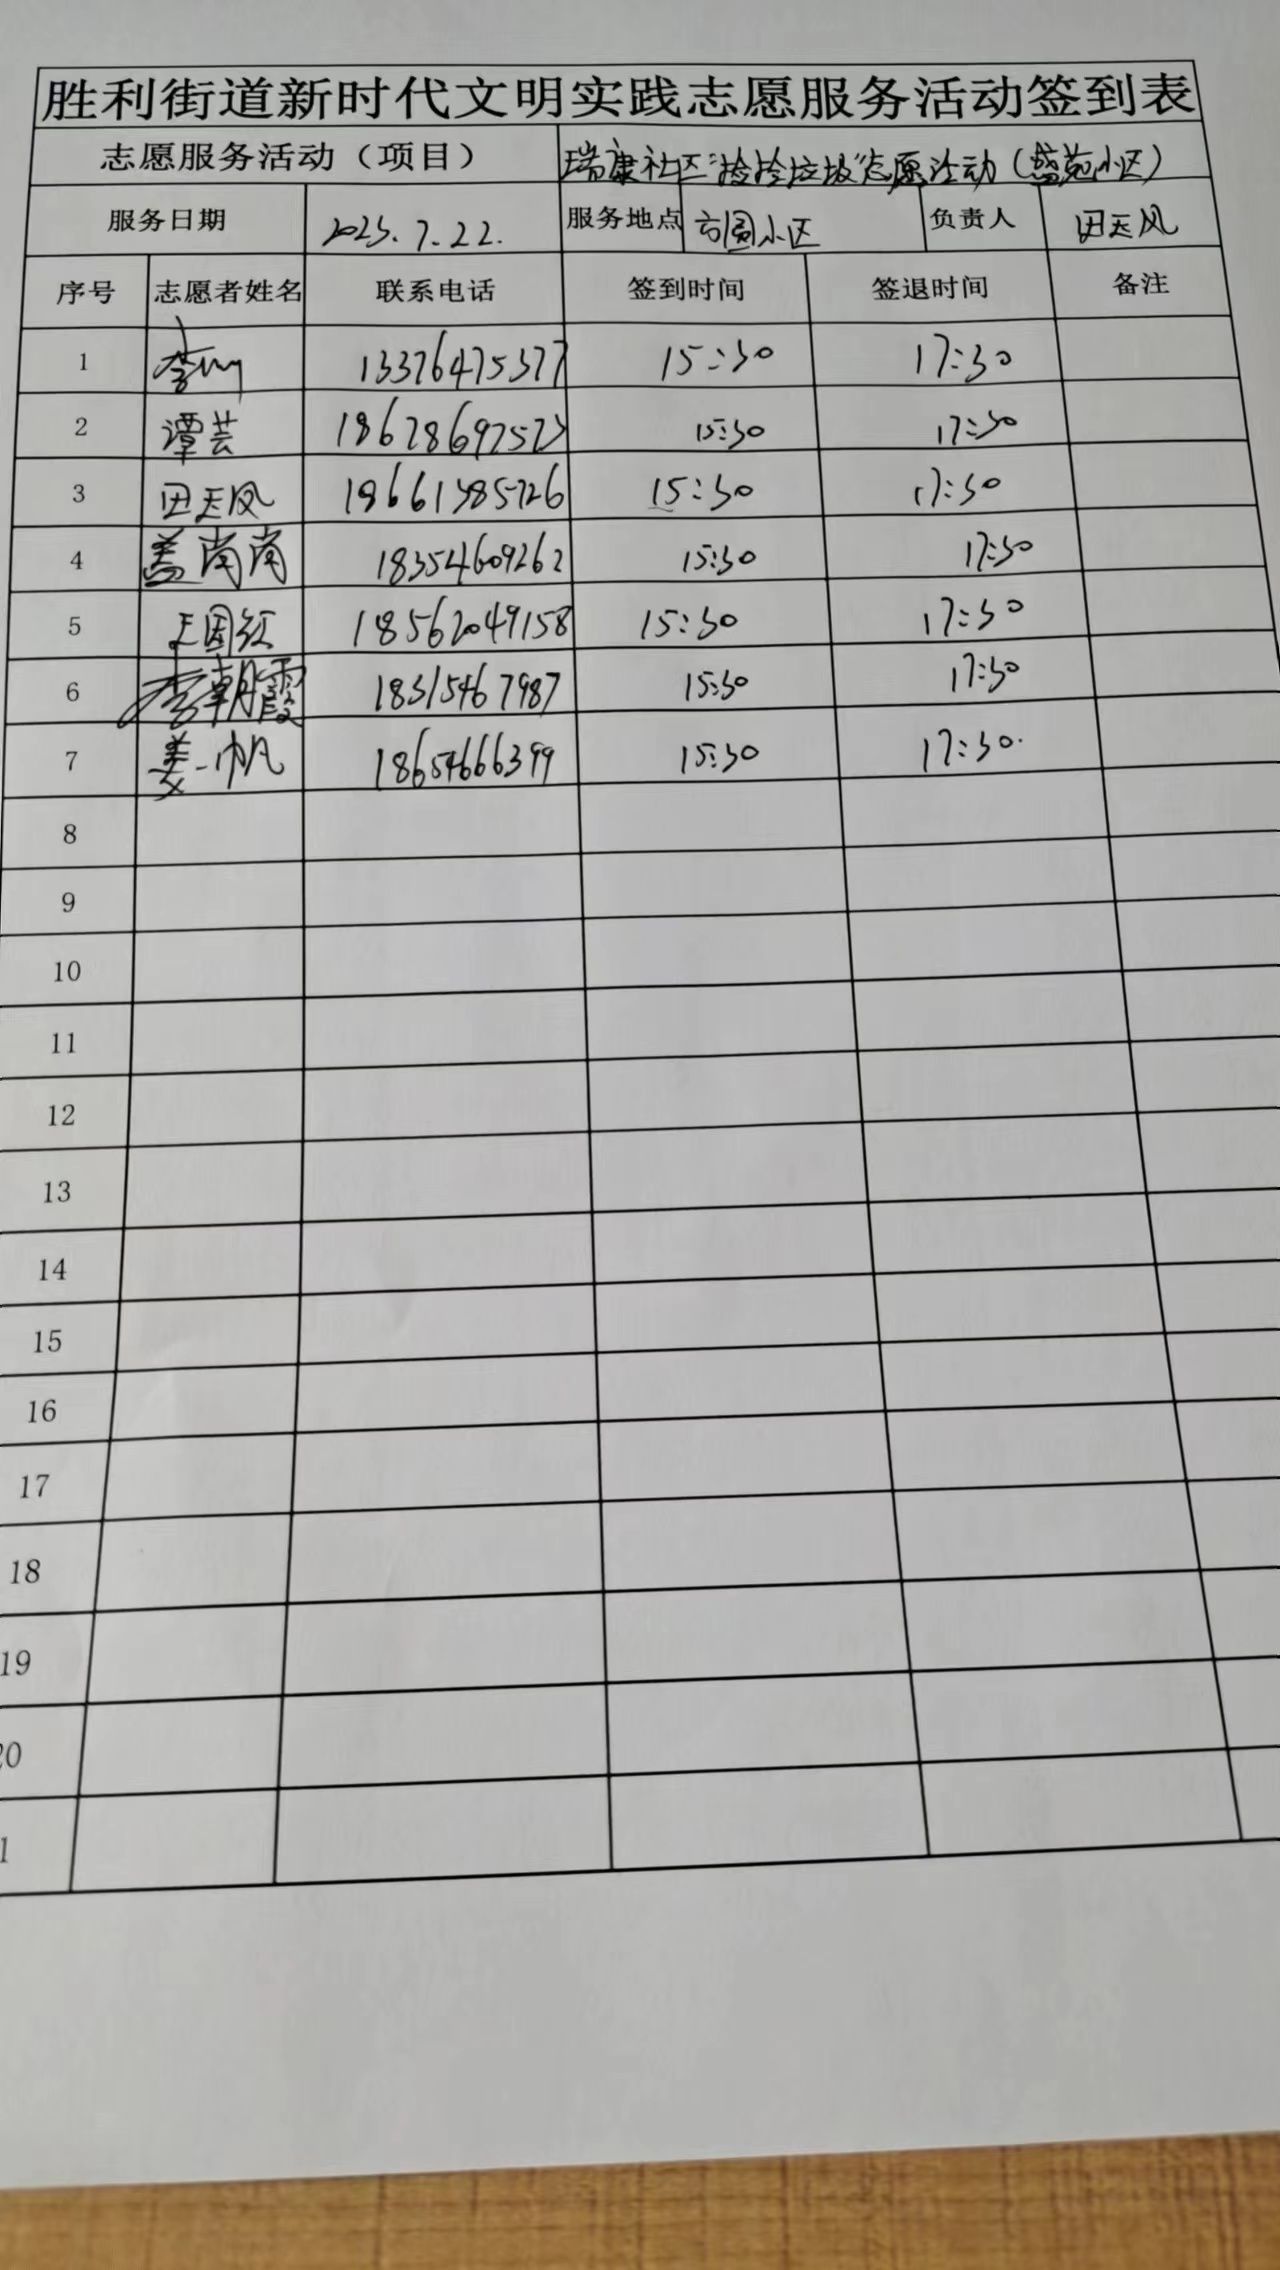 胜利街道新时代文明实践志愿服务活动签到表
志愿服务活动（项目） 瑞康社区“捡捡垃圾”志愿活动（盛苑小区）
服务日期 2025.7.22. 服务地点 方圆小区 负责人 田天风
序号 志愿者姓名 联系电话 签到时间 签退时间 备注
1 李 13376475377 15:30 17:30
2 谭芸 15:30 17:30
3 田天风 18661385726 15:30 17:30
4 盖南南 18354609262 15:30 17:30
5 王国红 18562049158 15:30 17:30
6 李朝霞 18315467987 15:30 17:30
7 姜一帆 18654666399 15:30 17:30.
8
9
10
11
12
13
14
15
16
17
18
19
20
1